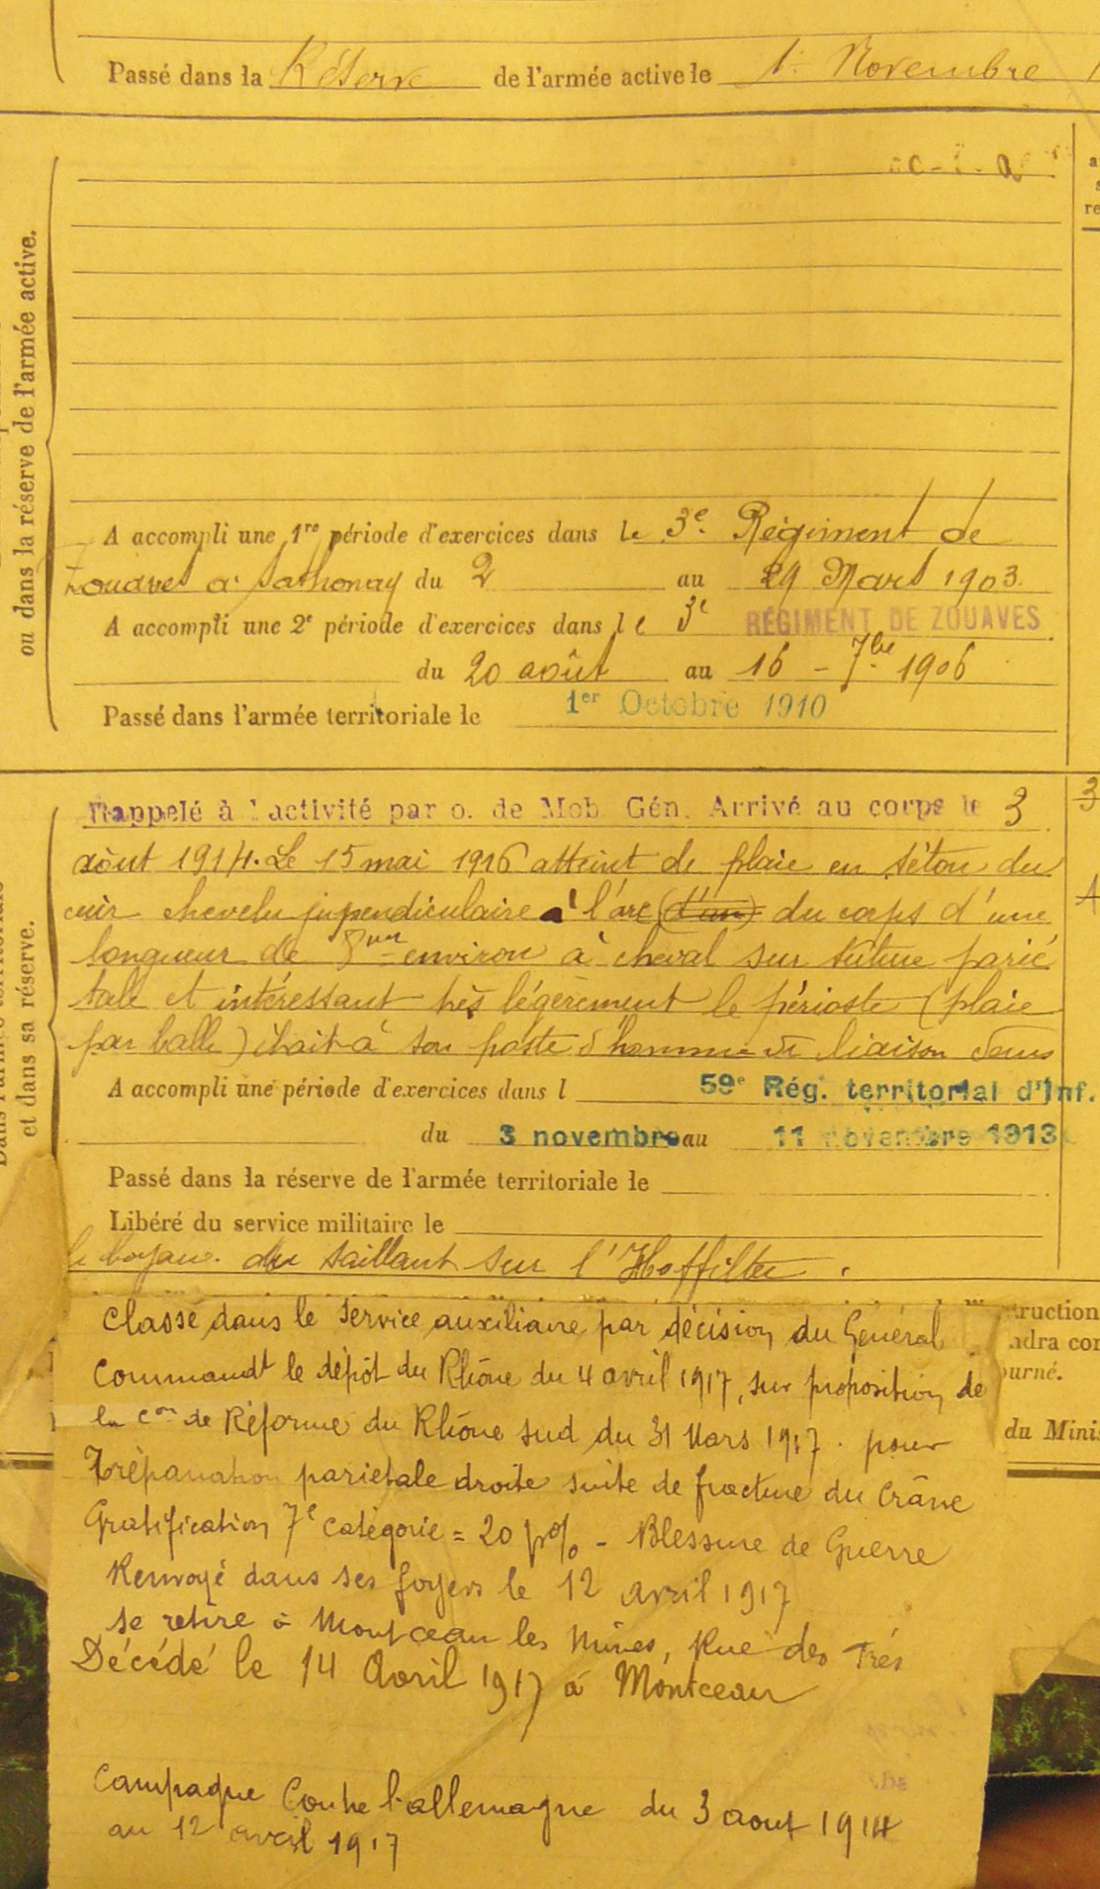 Passé dans la Réserve de l'armée active le 1. Novembre
ou dans la réserve de l'armée active.
A accompli une 1re période d'exercices dans le 3e Régiment de
Zouaves à Sathonay du 2 au 29 Mars 1903
A accompli une 2e période d'exercices dans le 3e RÉGIMENT DE ZOUAVES
du 20 août au 16 - 7bre 1906
Passé dans l'armée territoriale le 1er Octobre 1910
et dans sa réserve.
Rappelé à l'activité par o. de Mob. Gén. Arrivé au corps le 3
août 1914. Le 15 mai 1916 atteint de plaie en séton du
cuir chevelu perpendiculaire à l'axe (d'un) du corps d'une
longueur de environ à cheval sur suture parié
tale et intéressant très légèrement le périoste (plaie
par balle) était à son poste d'homme de liaison dans
A accompli une période d'exercices dans l 59e Rég. territorial d'Inf.
du 3 novembre au 11 novembre 1913
Passé dans la réserve de l'armée territoriale le
Libéré du service militaire le
le boyau du saillant sur l'
Classé dans le service auxiliaire par décision du Général
Commandt le dépôt du Rhône du 4 avril 1917, sur proposition de
la Con de Réforme du Rhône sud du 31 Mars 1917. pour
Trépanation pariétale droite suite de fracture du Crâne
Gratification 7e catégorie = 20 p% - Blessure de Guerre
Renvoyé dans ses foyers le 12 avril 1917
se retire à Montceau les Mines, Rue des Trés
Décédé le 14 Avril 1917 à Montceau
Campagne Contre l'allemagne du 3 aout 1914
au 12 avril 1917
truction
du Mini